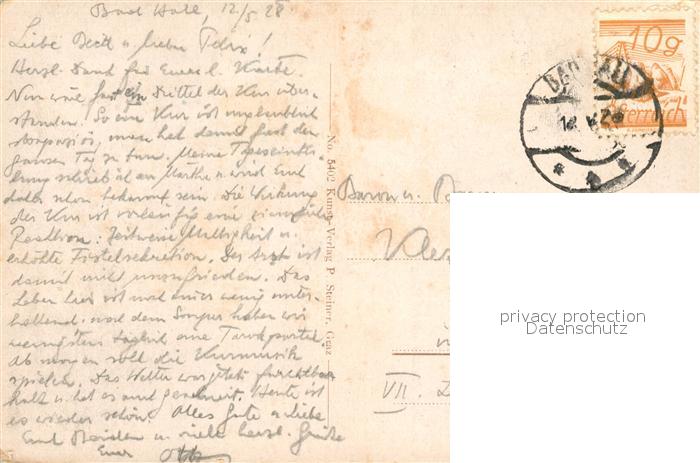 Bad Hall, 12/5 28
Liebe Deett u. lieber Felix!
Herzl. Dank für Euere l. Karte.
Nun wäre fast ein Drittel der Kur über-
standen. So eine Kur ist unglaublich
strapaziös, man hat damit fast den
ganzen Tag zu tun. Meine Tageseintei-
lung schrieb ich an Martha u. wird Euch
daher schon bekannt sein. Die Wirkung
der Kur ist vorläufig eine ziemliche
Reaktion: Zeitweise Mattigkeit u.
erhöhte Fistelsekretion. Der Arzt ist
damit nicht unzufrieden. Das
Leben hier ist noch immer wenig unter-
haltend. nach dem Souper haben wir
wenigstens täglich eine Tarokpartie.
Ab morgen soll die Kurmusik
spielen. Das Wetter war furchtbar
kalt u. hat es auch geschneit. Heute ist
es wieder schön. Alles Gute u. liebe
Euch Beiden u. viele herzl. Grüße
Euer Otto
No. 5402 Kunst-Verlag P. Steiner, Graz
Baron u.
VII.
10g
Österreich
BAD HALL
12 V 28
privacy protection
Datenschutz